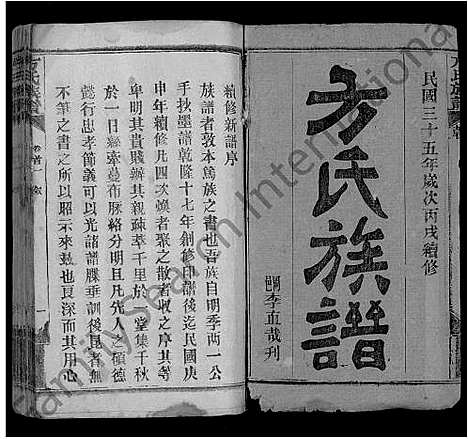 民國三十五年歲次丙戌續修
方氏族譜
李直哉刊
續修新譜序
族譜者敦本篤族之書也吾族自明季两一公
手抄墨譜乾隆十七年創修印譜後迄民國庚
申年續修凡四次煥者聚之散者收之序其等
卑明其貴賤辦其親疎萃千里於一堂集千秋
於一日縣索蔓布脈絡分明且凡先人之碩德
懿行忠孝節義可以光諸譜牒垂訓後昆者無
不筆之書之所以昭示來兹也良深而其用心
方氏族譜
卷首一
一
FamilySearch International